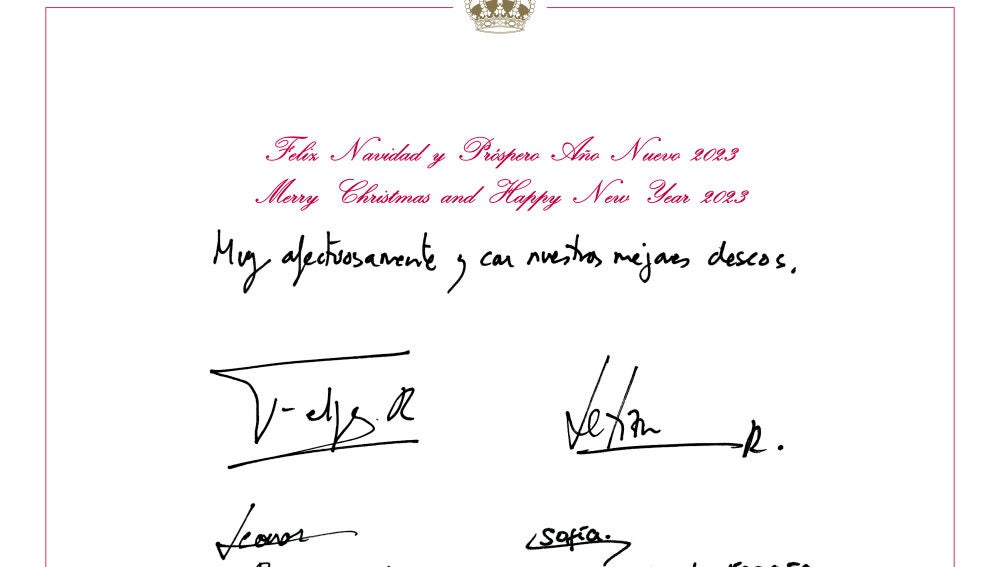 Feliz Navidad y Próspero Año Nuevo 2023
Merry Christmas and Happy New Year 2023
Muy afectuosamente y con nuestros mejores deseos.
Felipe R
Letizia R.
Leonor
Sofía.